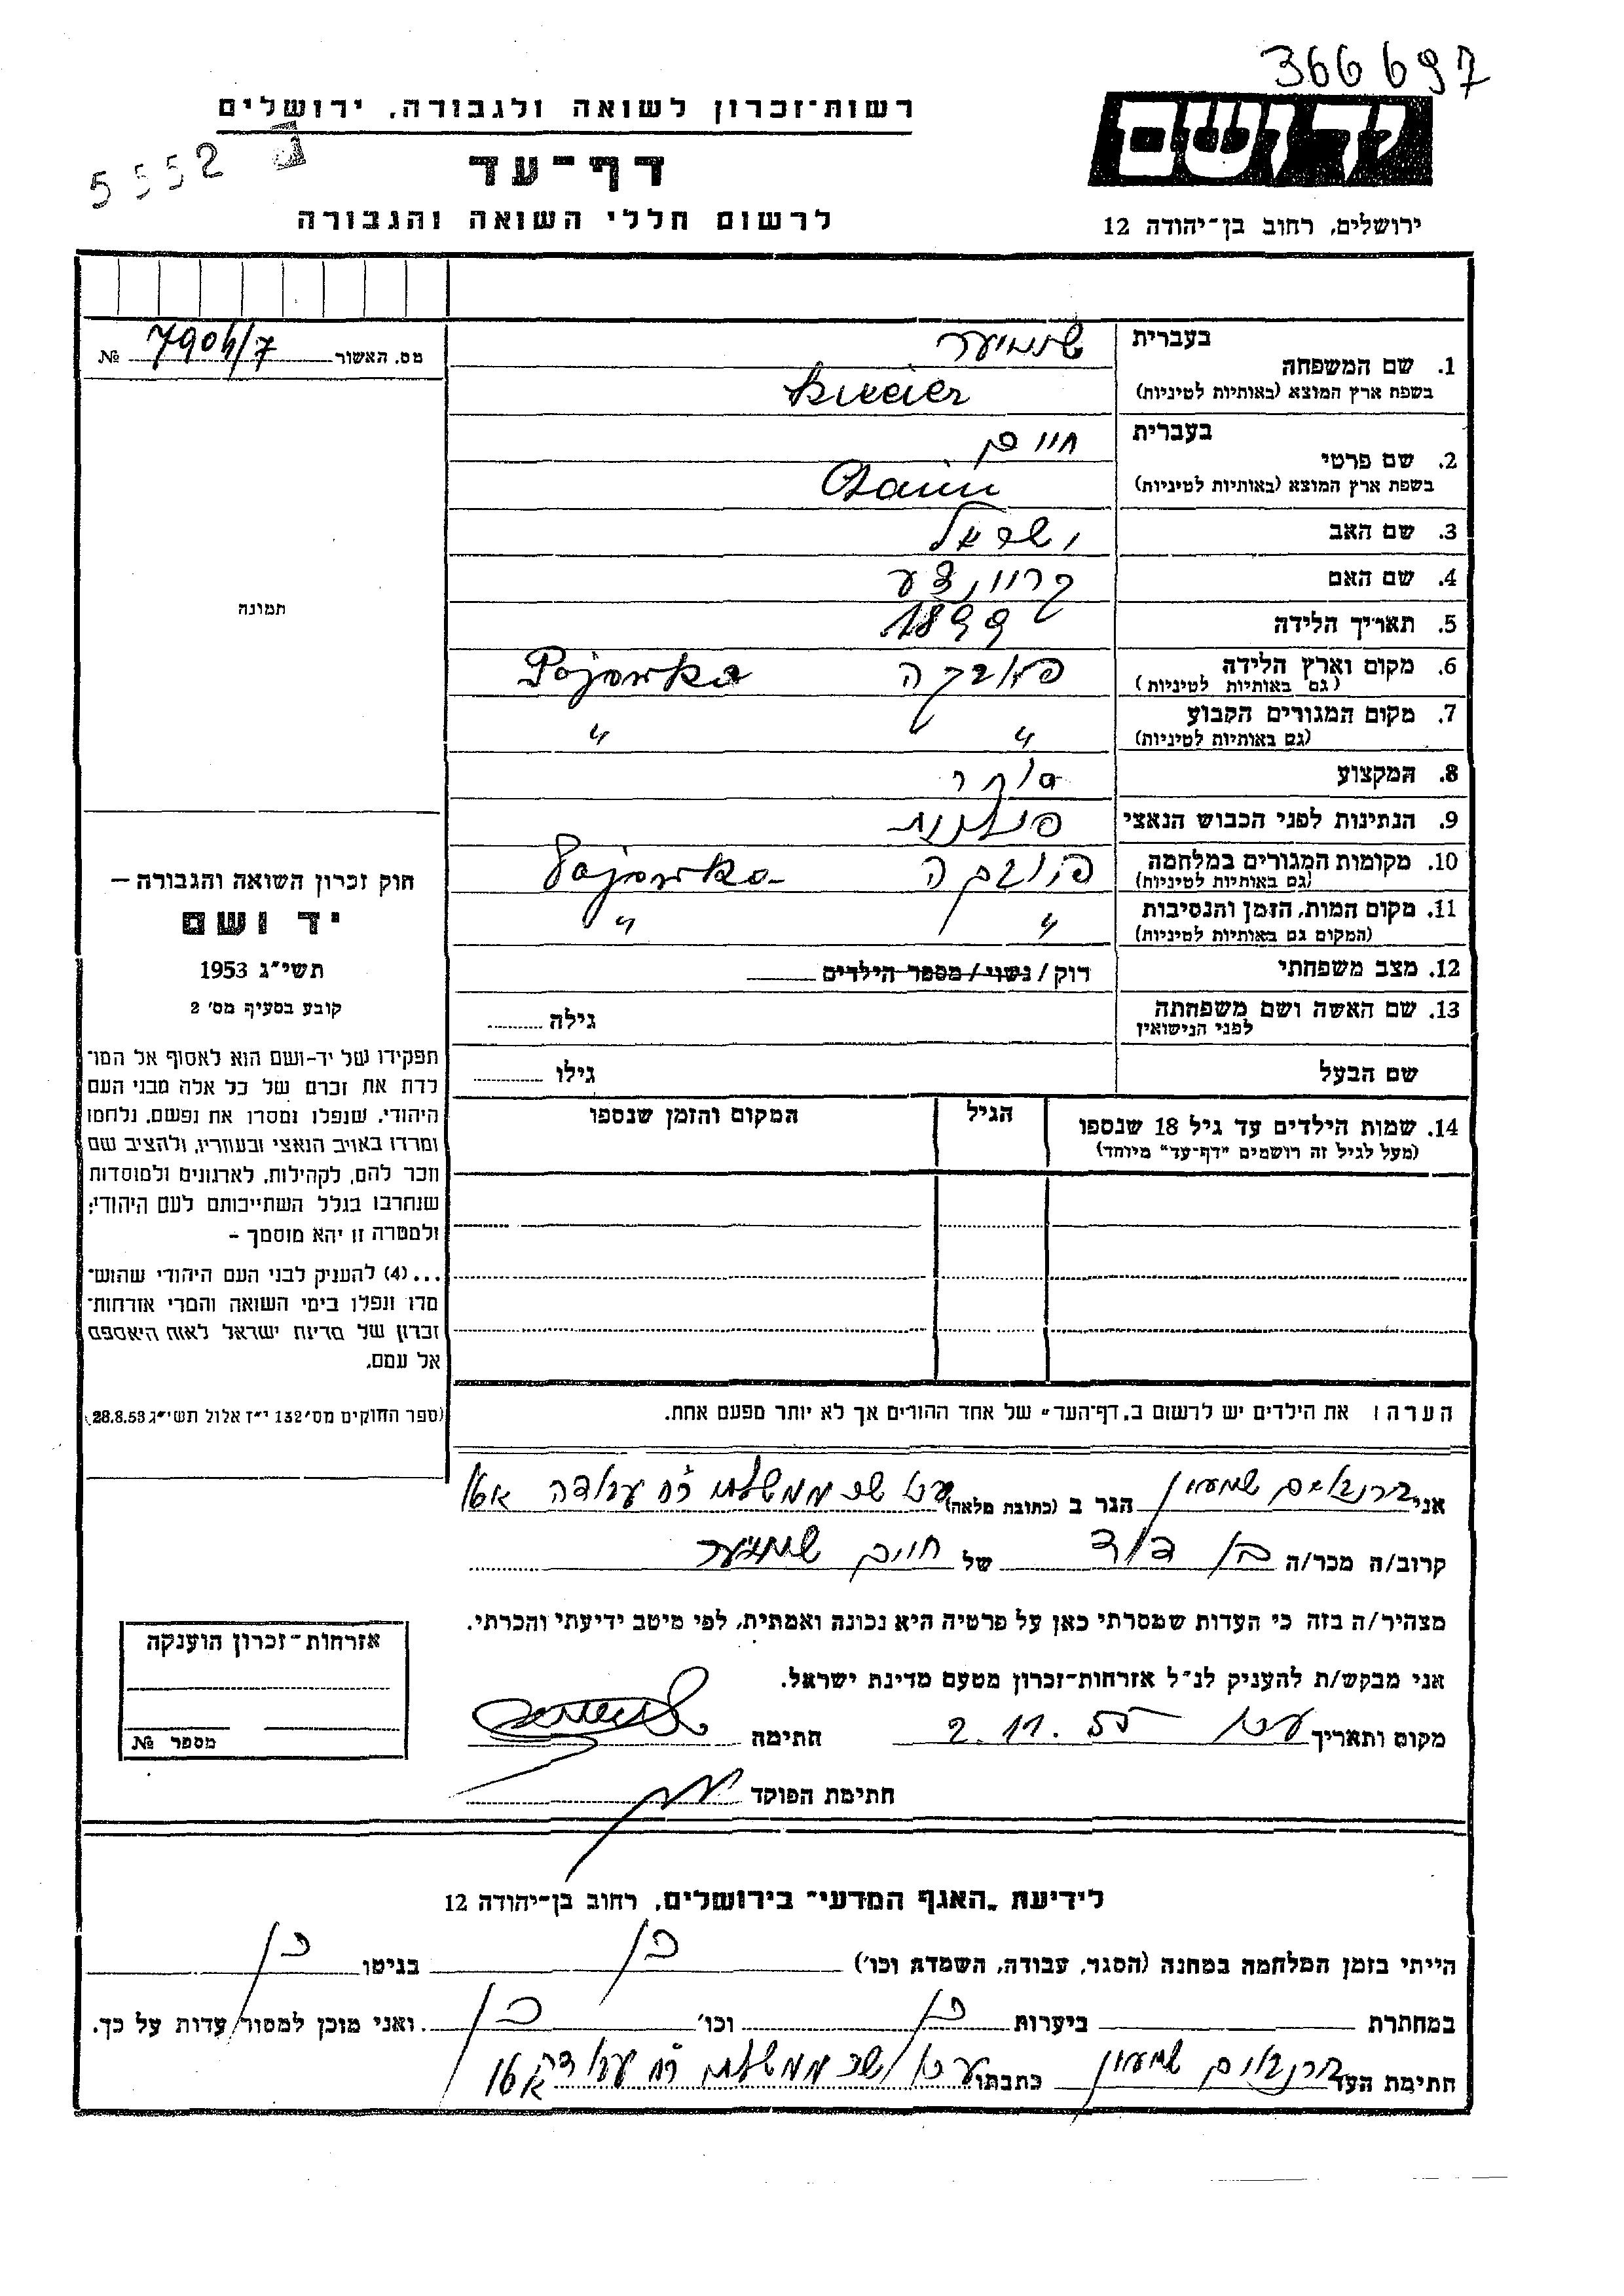 366697
רשות־זכרון לשואה ולגבורה, ירושלים
יד ושם
5552
דף־עד
לרשום חללי השואה והגבורה
ירושלים, רחוב בן־יהודה 12
מס. האשור 7904/7 №
1. שם המשפחה
בעברית
בשפת ארץ המוצא (באותיות לטיניות)
2. שם פרטי
בעברית חיים
בשפת ארץ המוצא (באותיות לטיניות) Chaim
3. שם האב ישראל
4. שם האם
5. תאריך הלידה 1899
6. מקום וארץ הלידה
(גם באותיות לטיניות) Pojowka
7. מקום המגורים הקבוע " "
(גם באותיות לטיניות)
8. המקצוע סוחר
9. הנתינות לפני הכבוש הנאצי פולנית
10. מקומות המגורים במלחמה
(גם באותיות לטיניות) Pojowka
11. מקום המות, הזמן והנסיבות " "
(המקום גם באותיות לטיניות)
12. מצב משפחתי רוק / נשוי / מספר הילדים
13. שם האשה ושם משפחתה
לפני הנישואין
גילה
שם הבעל גילו
14. שמות הילדים עד גיל 18 שנספו
(מעל לגיל זה רושמים "דף־עד" מיוחד)
הגיל
המקום והזמן שנספו
תמונה
חוק זכרון השואה והגבורה —
יד ושם
תשי"ג 1953
קובע בסעיף מס' 2
תפקידו של יד-ושם הוא לאסוף אל המו־
לדת את זכרם של כל אלה מבני העם
היהודי, שנפלו ומסרו את נפשם, נלחמו
ומרדו באויב הנאצי ובעוזריו, ולהציב שם
וזכר להם, לקהילות, לארגונים ולמוסדות
שנחרבו בגלל השתייכותם לעם היהודי;
ולמטרה זו יהא מוסמך –
...(4) להעניק לבני העם היהודי שהוש־
מדו ונפלו בימי השואה והמרי אזרחות־
זכרון של מדינת ישראל לאות היאספם
אל עמם.
(ספר החוקים מס' 132 י"ז אלול תשי"ג 28.8.53)
הערה: את הילדים יש לרשום ב"דף־העד" של אחד ההורים אך לא יותר מפעם אחת.
אני שמעון הגר ב (כתובת מלאה) עכו
קרוב/ה מכר/ה בן דוד של חיים
מצהיר/ה בזה כי העדות שמסרתי כאן על פרטיה היא נכונה ואמתית, לפי מיטב ידיעתי והכרתי.
אני מבקש/ת להעניק לנ"ל אזרחות־זכרון מטעם מדינת ישראל.
מקום ותאריך עכו 2.11.55 חתימה
חתימת הפוקד
אזרחות־זכרון הוענקה
מספר №
לידיעת "האגף המדעי" בירושלים, רחוב בן־יהודה 12
הייתי בזמן המלחמה במחנה (הסגר, עבודה, השמדה וכו') כן בגיטו כן
במחתרת ביערות כן וכו' כן ואני מוכן למסור עדות על כך.
חתימת העד שמעון כתבתו עכו